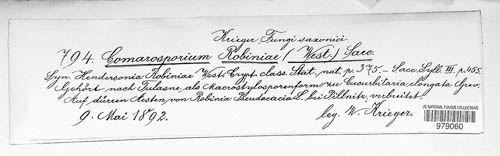 Krieger Fungi saxonici.
794. Comarosporium Robiniae (West.) Sacc.
Syn. Hendersonia Robiniae West. Crypt. class. Stat. nat. p. 375. – Sacc. Syll. III. p. 455.
Gehört nach Tulasne, als Macrostylosporenform zu Cucurbitaria elongata Grev.
Auf dürren Aesten von Robinia Pseudacacia L. bei Pillnitz, verbreitet.
9. Mai 1892. leg. W. Krieger.
US NATIONAL FUNGUS COLLECTIONS
979060